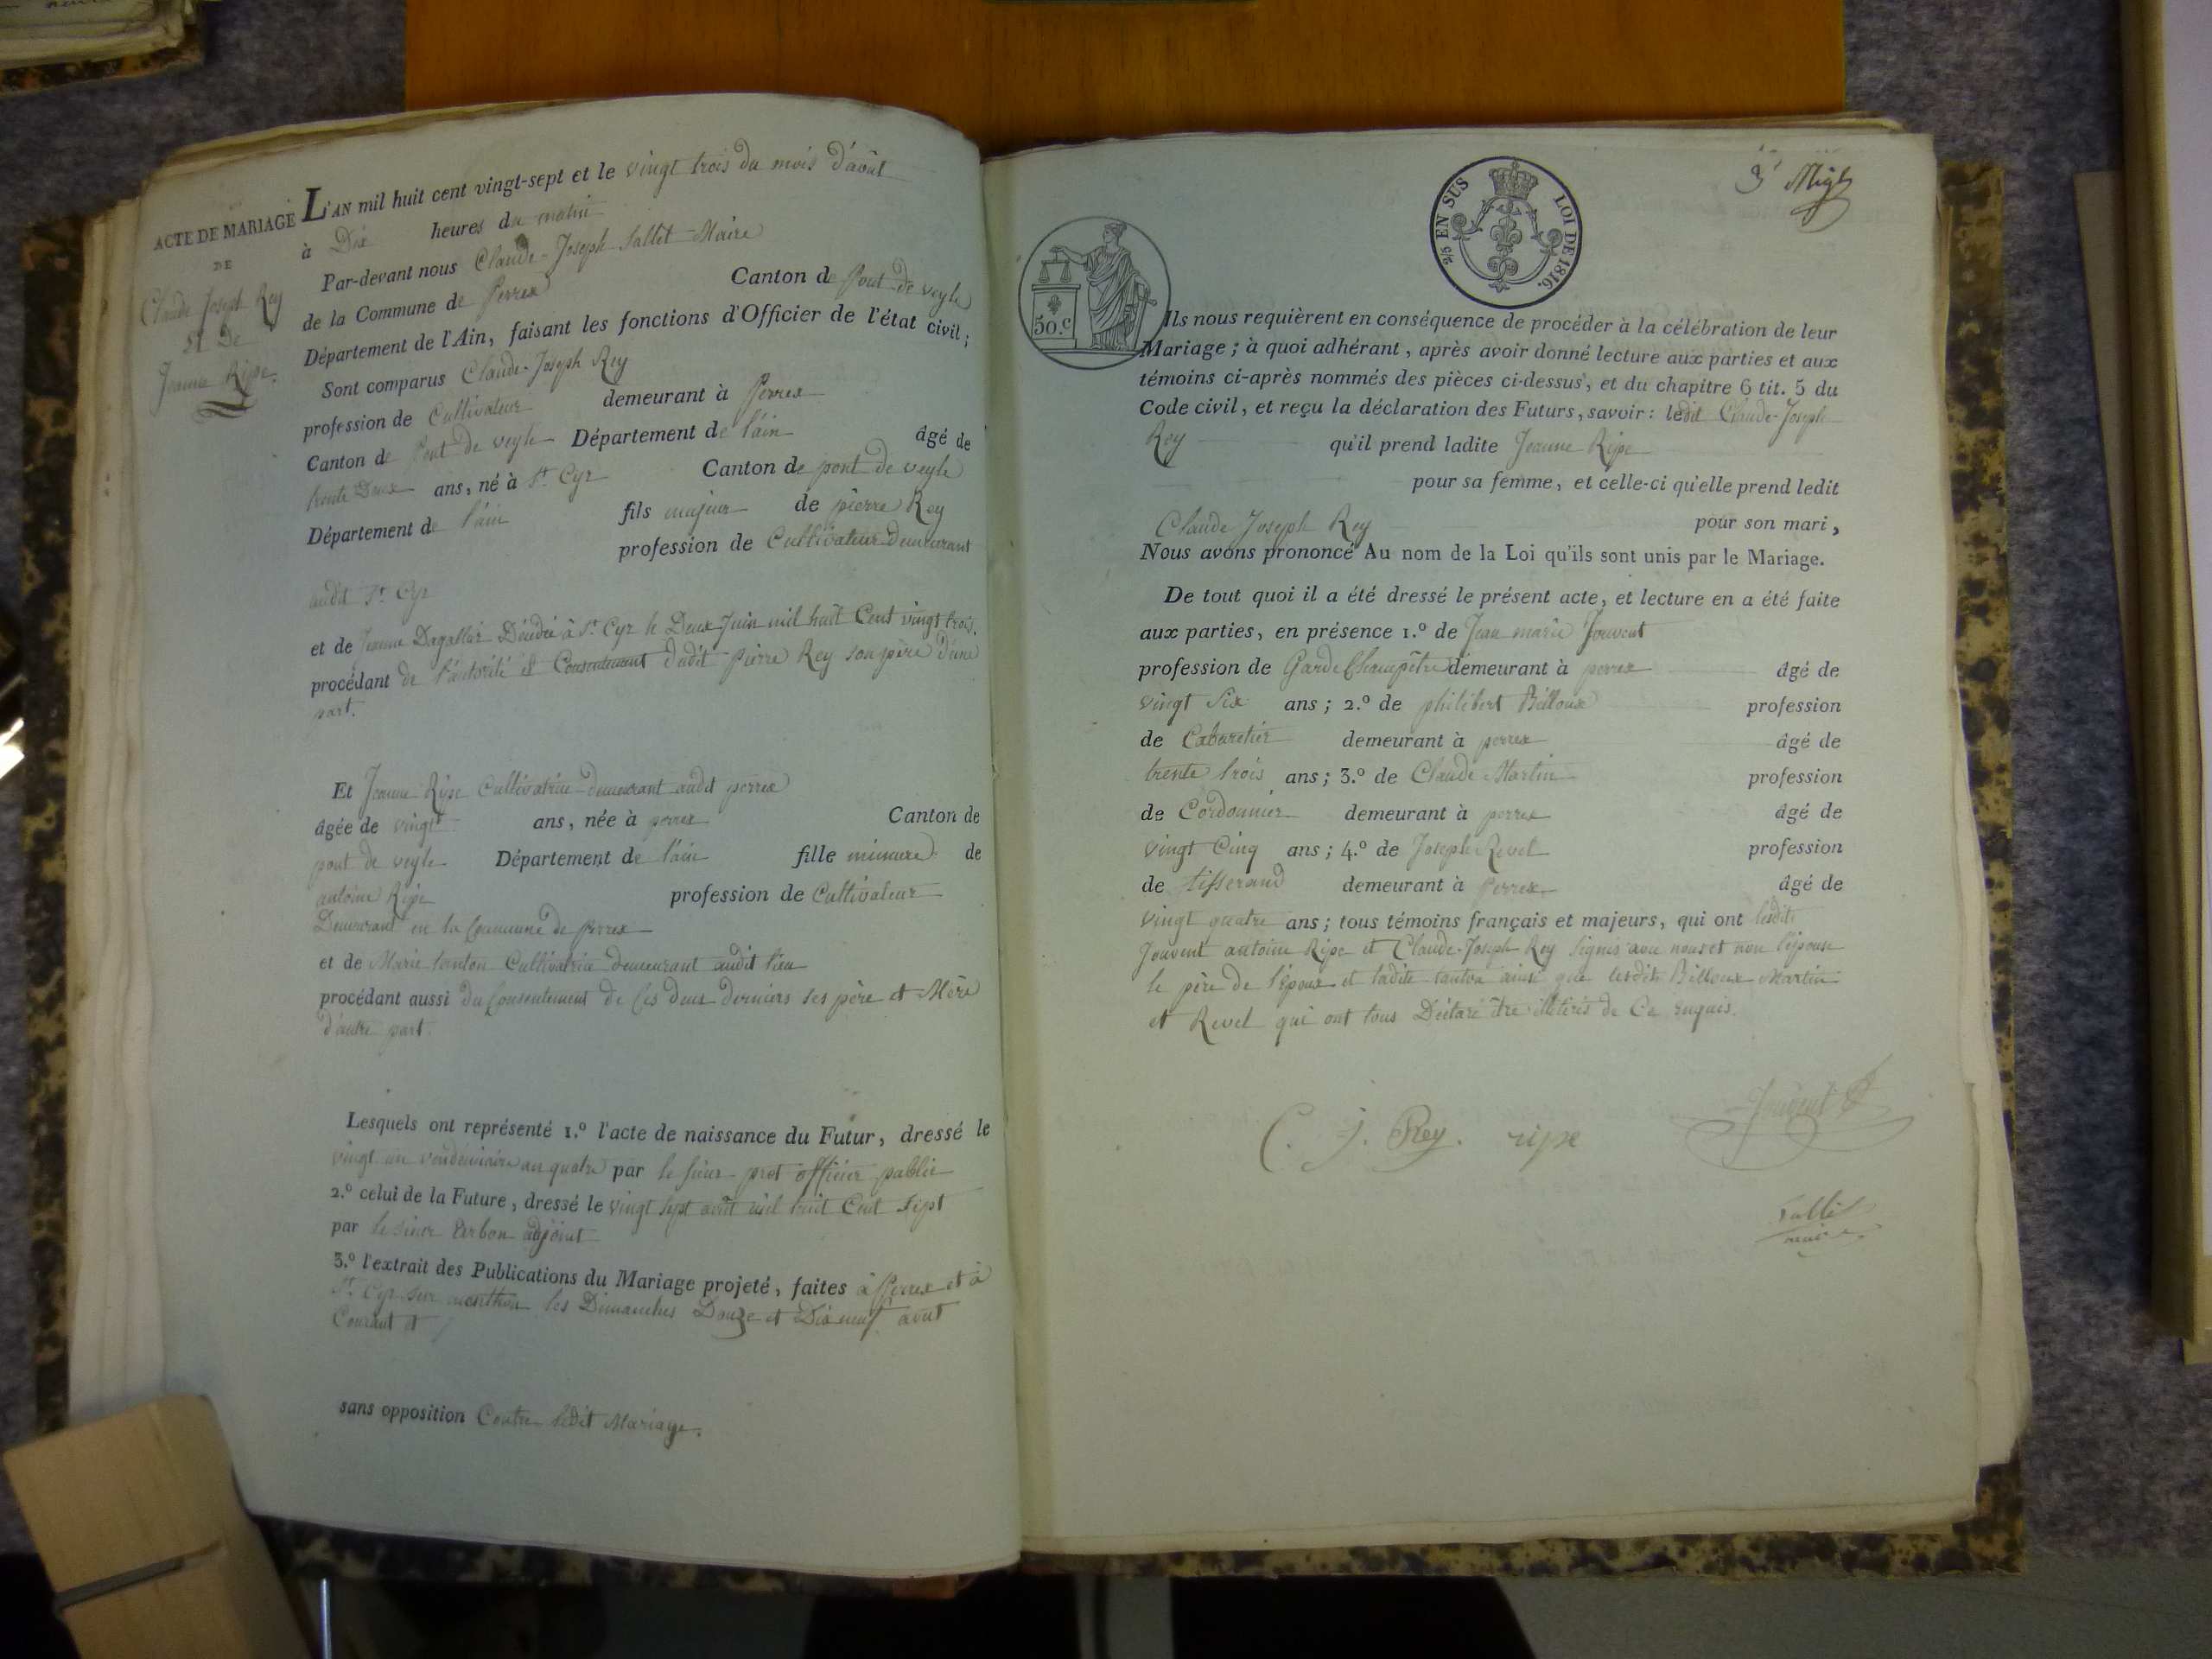 ACTE DE MARIAGE
DE
Claude Joseph Rey
et De
Jeanne Ripe.
L'AN mil huit cent vingt-sept et le vingt trois du mois d'août
à Dix heures du matin
Par-devant nous Claude-Joseph Sallet Maire
de la Commune de Perrex Canton de Pont-de-veyle
Département de l'Ain, faisant les fonctions d'Officier de l'état civil;
Sont comparus Claude-Joseph Rey
profession de Cultivateur demeurant à Perrex
Canton de Pont de veyle Département de l'ain âgé de
trente Deux ans, né à St. Cyr Canton de pont de veyle
Département de l'ain fils majeur de pierre Rey
profession de Cultivateur demeurant
audit St. Cyr
et de Jeanne Dagallier Décédée à St. Cyr le Deux Juin mil huit Cent vingt trois.
procédant de l'autorité et Consentement dudit Pierre Rey son père d'une
part.
Et Jeanne Ripe Cultivatrice demeurant audit perrex
âgée de vingt ans, née à perrex Canton de
pont de veyle Département de l'ain fille mineure de
antoine Ripe profession de Cultivateur
Demeurant en la Commune de perrex
et de Marie tanton Cultivatrice demeurant audit lieu
procédant aussi du Consentement de Ces deux Derniers ses père et Mère
d'autre part.
Lesquels ont représenté 1.º l'acte de naissance du Futur, dressé le
vingt un vendemiaire an quatre par le sieur prot officier public
2.º celui de la Future, dressé le vingt sept août mil huit Cent sept
par le sieur Carbon adjoint
3.º l'extrait des Publications du Mariage projeté, faites à Perrex et à
St. Cyr sur menthon les Dimanches Douze et Dix neuf aout
Courant et
sans opposition Contre ledit Mariage.
2/5 EN SUS LOI DE 1816.
50.c
Ils nous requièrent en conséquence de procéder à la célébration de leur
Mariage; à quoi adhérant, après avoir donné lecture aux parties et aux
témoins ci-après nommés des pièces ci-dessus, et du chapitre 6 tit. 5 du
Code civil, et reçu la déclaration des Futurs, savoir: ledit Claude-Joseph
Rey qu'il prend ladite Jeanne Ripe
pour sa femme, et celle-ci qu'elle prend ledit
Claude Joseph Rey pour son mari,
Nous avons prononcé Au nom de la Loi qu'ils sont unis par le Mariage.
De tout quoi il a été dressé le présent acte, et lecture en a été faite
aux parties, en présence 1.º de Jean marie Jouvent
profession de Garde Champêtre demeurant à perrex âgé de
vingt Six ans; 2.º de philibert Billoux profession
de Cabaretier demeurant à perrex âgé de
trente trois ans; 3.º de Claude Martin profession
de Cordonnier demeurant à perrex âgé de
vingt Cinq ans; 4.º de Joseph Revel profession
de tisserand demeurant à Perrex âgé de
vingt quatre ans; tous témoins français et majeurs, qui ont lesdits
Jouvent antoine Ripe et Claude-Joseph Rey signés avec nous et non l'épouse
le père de l'époux et ladite tanton ainsi que lesdits Billoux Martin
et Revel qui ont tous Déclaré être illiterés de Ce requis.
C. J. Rey. ripe Jouvent
Sallet
maire